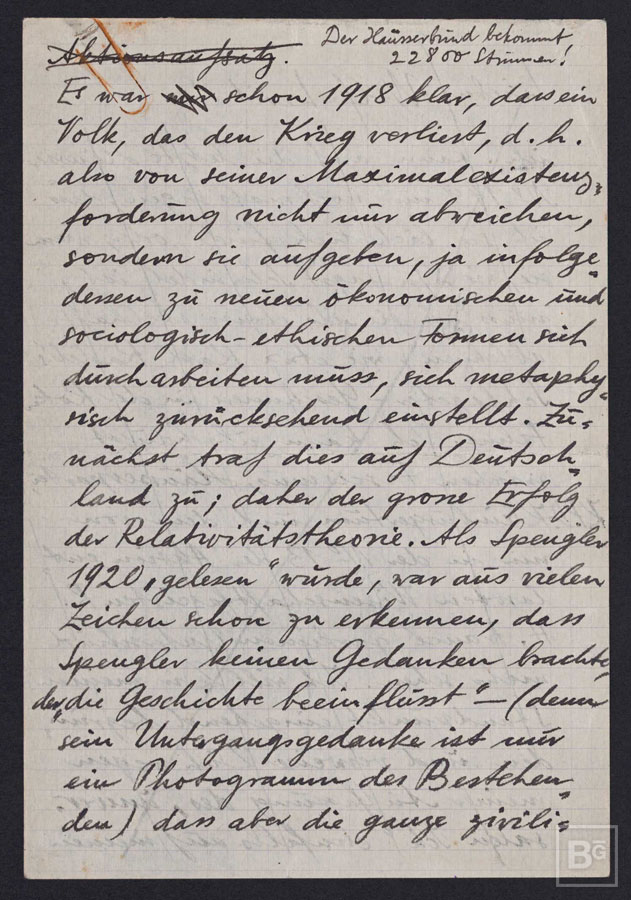 Der Häusserbund bekommt
22800 Stimmen!
Aktionsaufsatz.
Es war schon 1918 klar, dass ein
Volk, das den Krieg verliert, d. h.
also von seiner Maximalexistenz-
forderung nicht nur abweichen,
sondern sie aufgeben, ja infolge
dessen zu neuen ökonomischen und
sociologisch-ethischen Formen sich
durcharbeiten muss, sich metaphy-
sisch zurücksehend einstellt. Zu-
nächst traf dies auf Deutsch-
land zu; daher der grosse Erfolg
der Relativitätstheorie. Als Spengler
1920 „gelesen“ wurde, war aus vielen
Zeichen schon zu erkennen, dass
Spengler keinen Gedanken brachte,
der „die Geschichte beeinflusst“ – (denn
sein Untergangsgedanke ist nur
ein Photogramm des Bestehen-
den) dass aber die ganze zivili-
BG